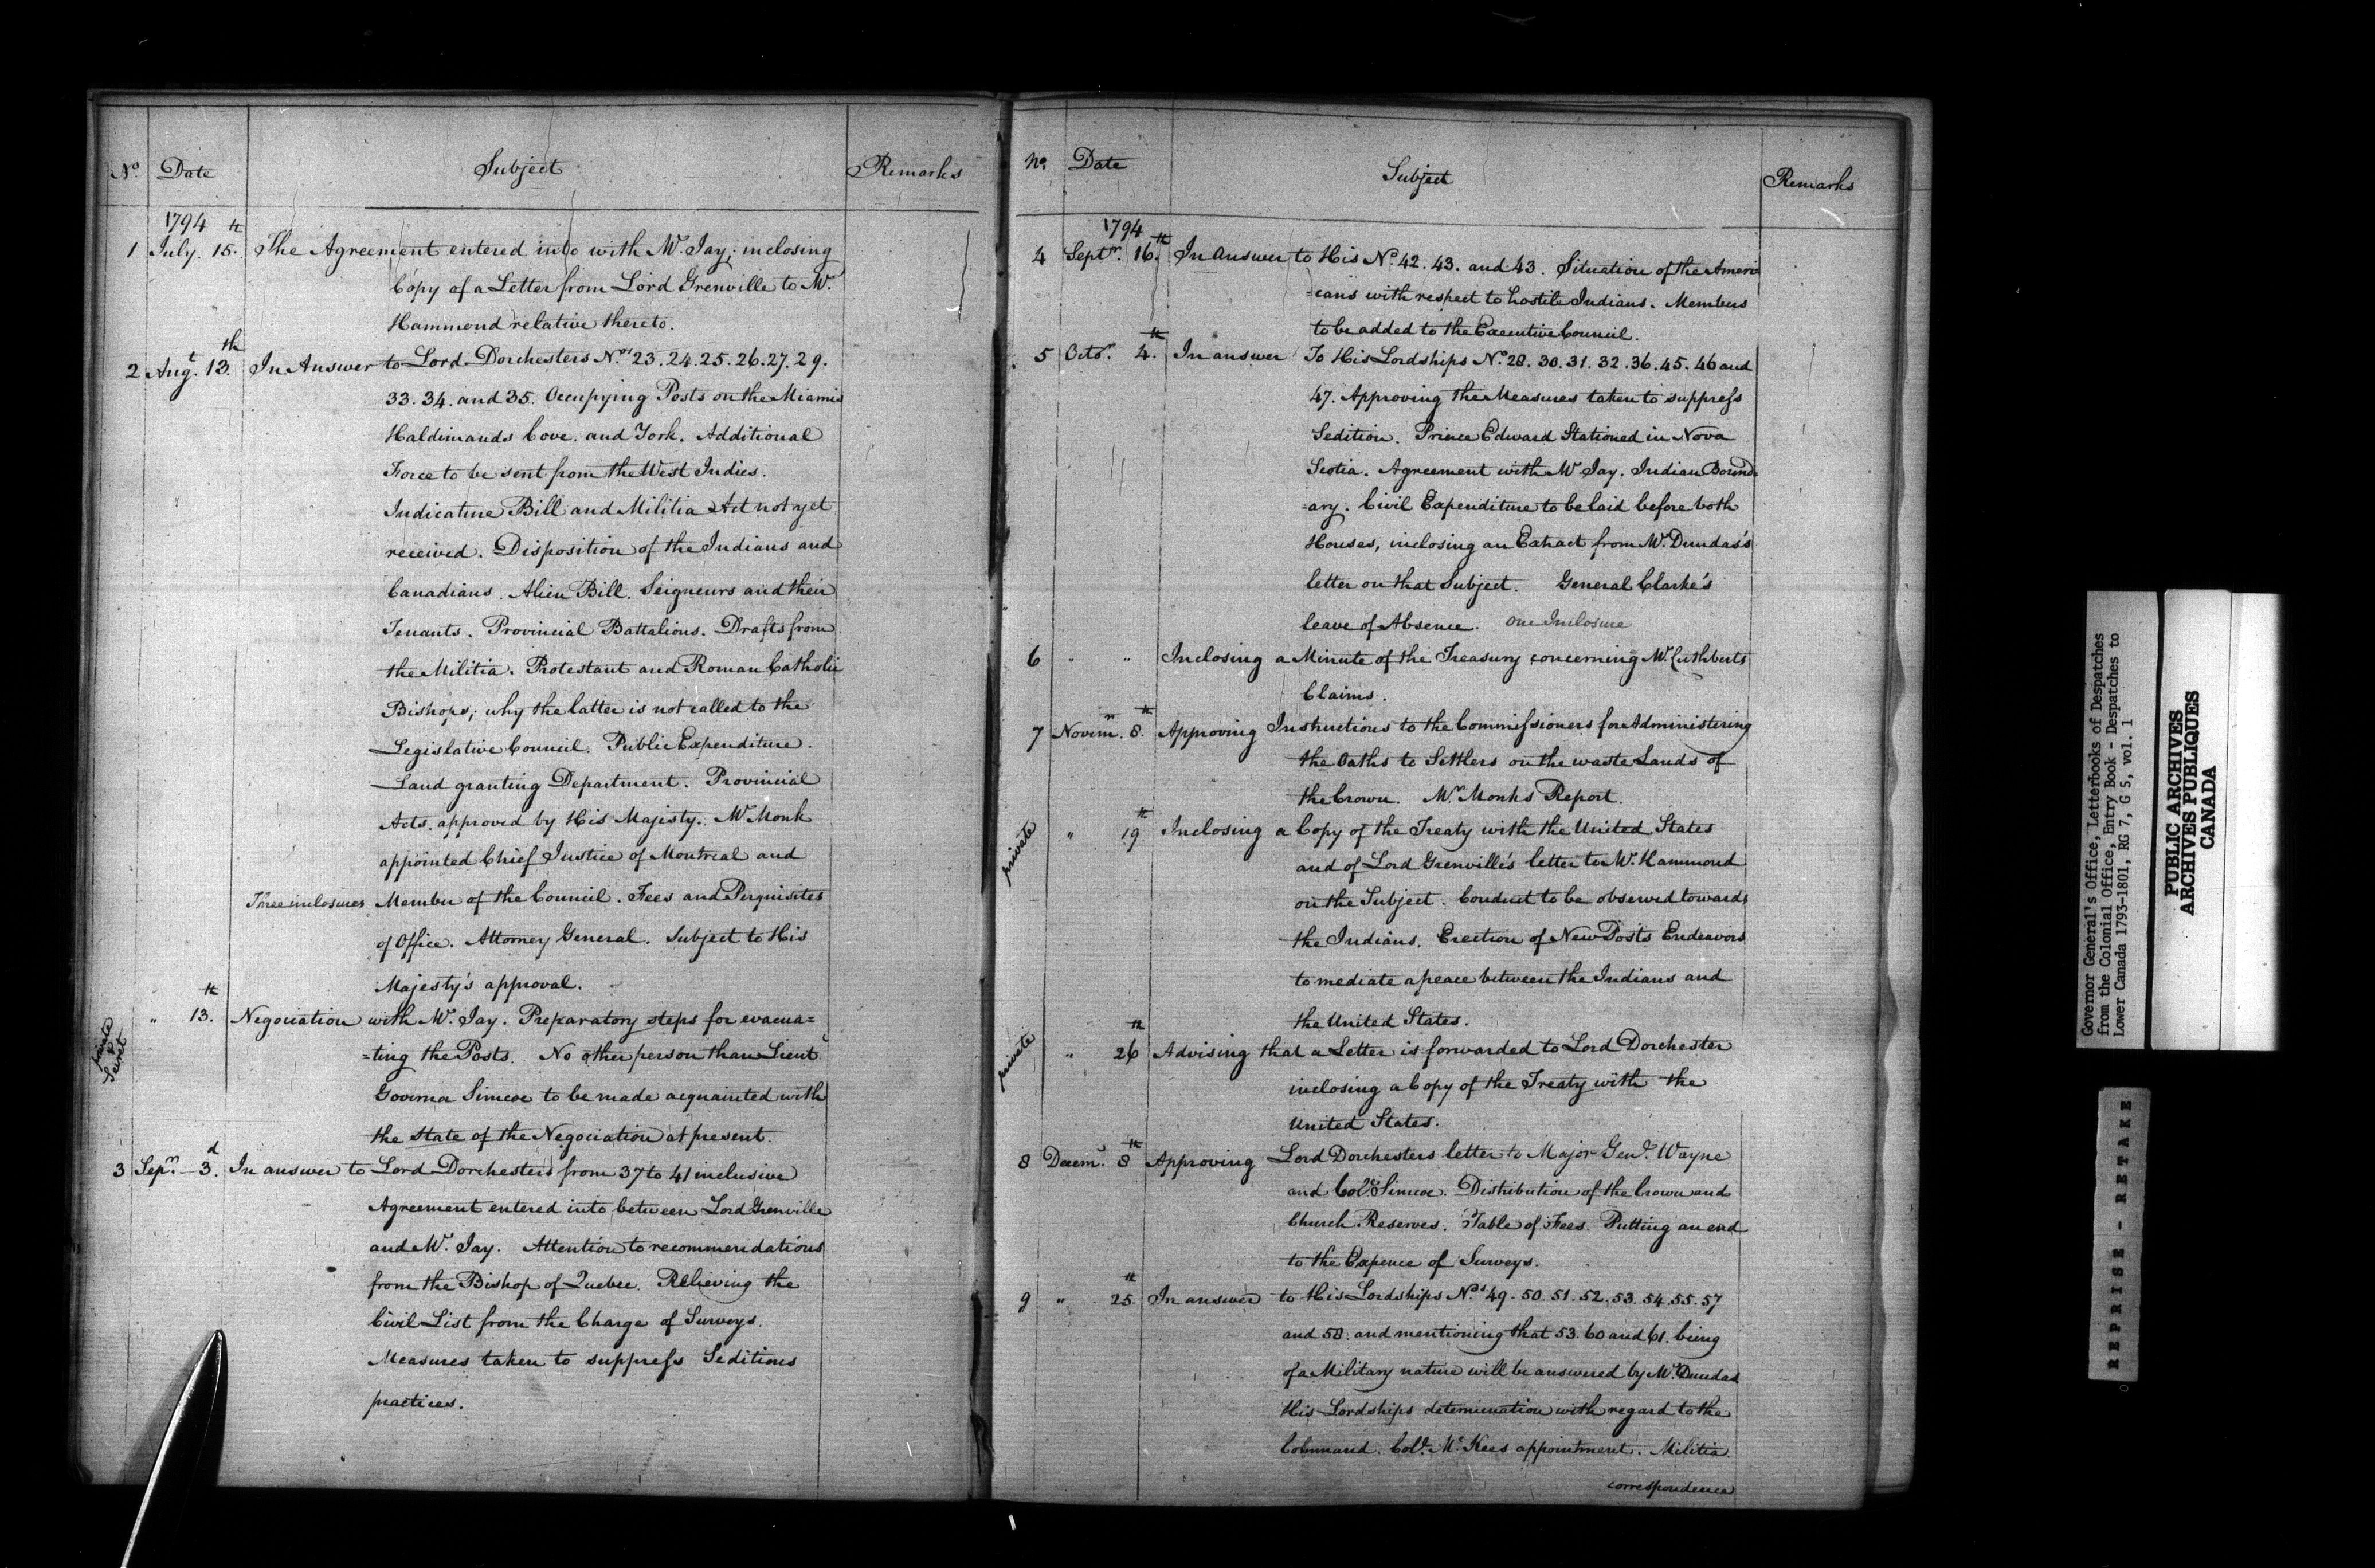 No. Date Subject Remarks
1794
1 July. 15th. The Agreement entered into with Mr. Jay; inclosing
Copy of a Letter from Lord Grenville to Mr.
Hammond relative thereto.
2 Augt. 13th. In Answer to Lord Dorchesters Nos. 23. 24. 25. 26. 27. 29.
33. 34. and 35. Occupying Posts on the Miamis
Haldimands Cove. and York. Additional
Force to be sent from the West Indies.
Judicature Bill and Militia Act not yet
received. Disposition of the Indians and
Canadians. Alien Bill. Seigneurs and their
Tenants. Provincial Battalions. Drafts from
the Militia. Protestant and Roman Catholic
Bishops; why the latter is not called to the
Legislative Council. Public Expenditure.
Land granting Department. Provincial
Acts. approved by His Majesty. Mr Monk
appointed Chief Justice of Montreal and
Three inclosures Member of the Council. Fees and Perquisites
of Office. Attorney General. Subject to His
Majesty's approval.
private & Secret " 13th. Negociation with Mr. Jay. Preparatory steps for evacua=
=ting the Posts. No other person than Lieut.
Governor Simcoe to be made acquainted with
the State of the Negociation at present.
3 Sepr. 3d. In answer to Lord Dorchesters from 37 to 41 inclusive
Agreement entered into between Lord Grenville
and Mr. Jay. Attention to recommendations
from the Bishop of Quebec. Relieving the
Civil List from the Charge of Surveys.
Measures taken to suppress Seditious
practices.
No. Date Subject Remarks
1794
4 Septr. 16th. In Answer to His No. 42. 43. and 43. Situation of the Ameri
=cans with respect to hostile Indians. Members
to be added to the Executive Council.
5 Octor. 4th. In answer To His Lordships No. 28. 30. 31. 32. 36. 45. 46 and
47. Approving the Measures taken to suppress
Sedition. Prince Edward Stationed in Nova
Scotia. Agreement with Mr Jay. Indian Bound=
=ary. Civil Expenditure to be laid before both
Houses, inclosing an Extract from Mr. Dundas's
letter on that Subject. General Clarke's
leave of Absence. One Inclosure
6 " " Inclosing a Minute of the Treasury concerning Mr. Cuthberts
Claims.
7 Novem. 8th. Approving Instructions to the Commissioners for Administering
the Oaths to Settlers on the waste Lands of
the Crown. Mr. Monks Report.
private " 19th Inclosing a Copy of the Treaty with the United States
and of Lord Grenville's letter to Mr. Hammond
on the Subject. Conduct to be observed towards
the Indians. Erection of New Posts Endeavors
to mediate a peace between the Indians and
the United States.
private " 26th Advising that a Letter is forwarded to Lord Dorchester
inclosing a Copy of the Treaty with the
United States.
8 Decemr. 8th Approving Lord Dorchesters letter to Major Genl. Wayne
and Colo. Simcoe. Distribution of the Crown and
Church Reserves. Table of Fees. Putting an end
to the Expence of Surveys.
9 " 25th. In answer to His Lordships Nos. 49. 50. 51. 52. 53. 54. 55. 57
and 58. and mentioning that 53. 60 and 61. being
of a Military nature will be answered by Mr. Dundas
His Lordships determination with regard to the
Command. Colo. Mc. Kees appointment. Militia.
correspondence
Governor General's Office, Letterbooks of Despatches
from the Colonial Office, Entry Book - Despatches to
Lower Canada 1793-1801, RG 7, G 5, vol. 1
PUBLIC ARCHIVES
ARCHIVES PUBLIQUES
CANADA
REPRISE - RETAKE